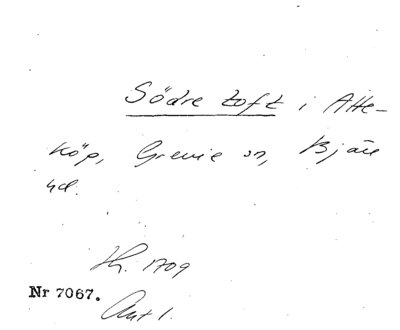 Södre toft i Atte-
köp, Grevie sn, Bjäre
hd.
Th. 1709
Nr 7067.
Ant 1.